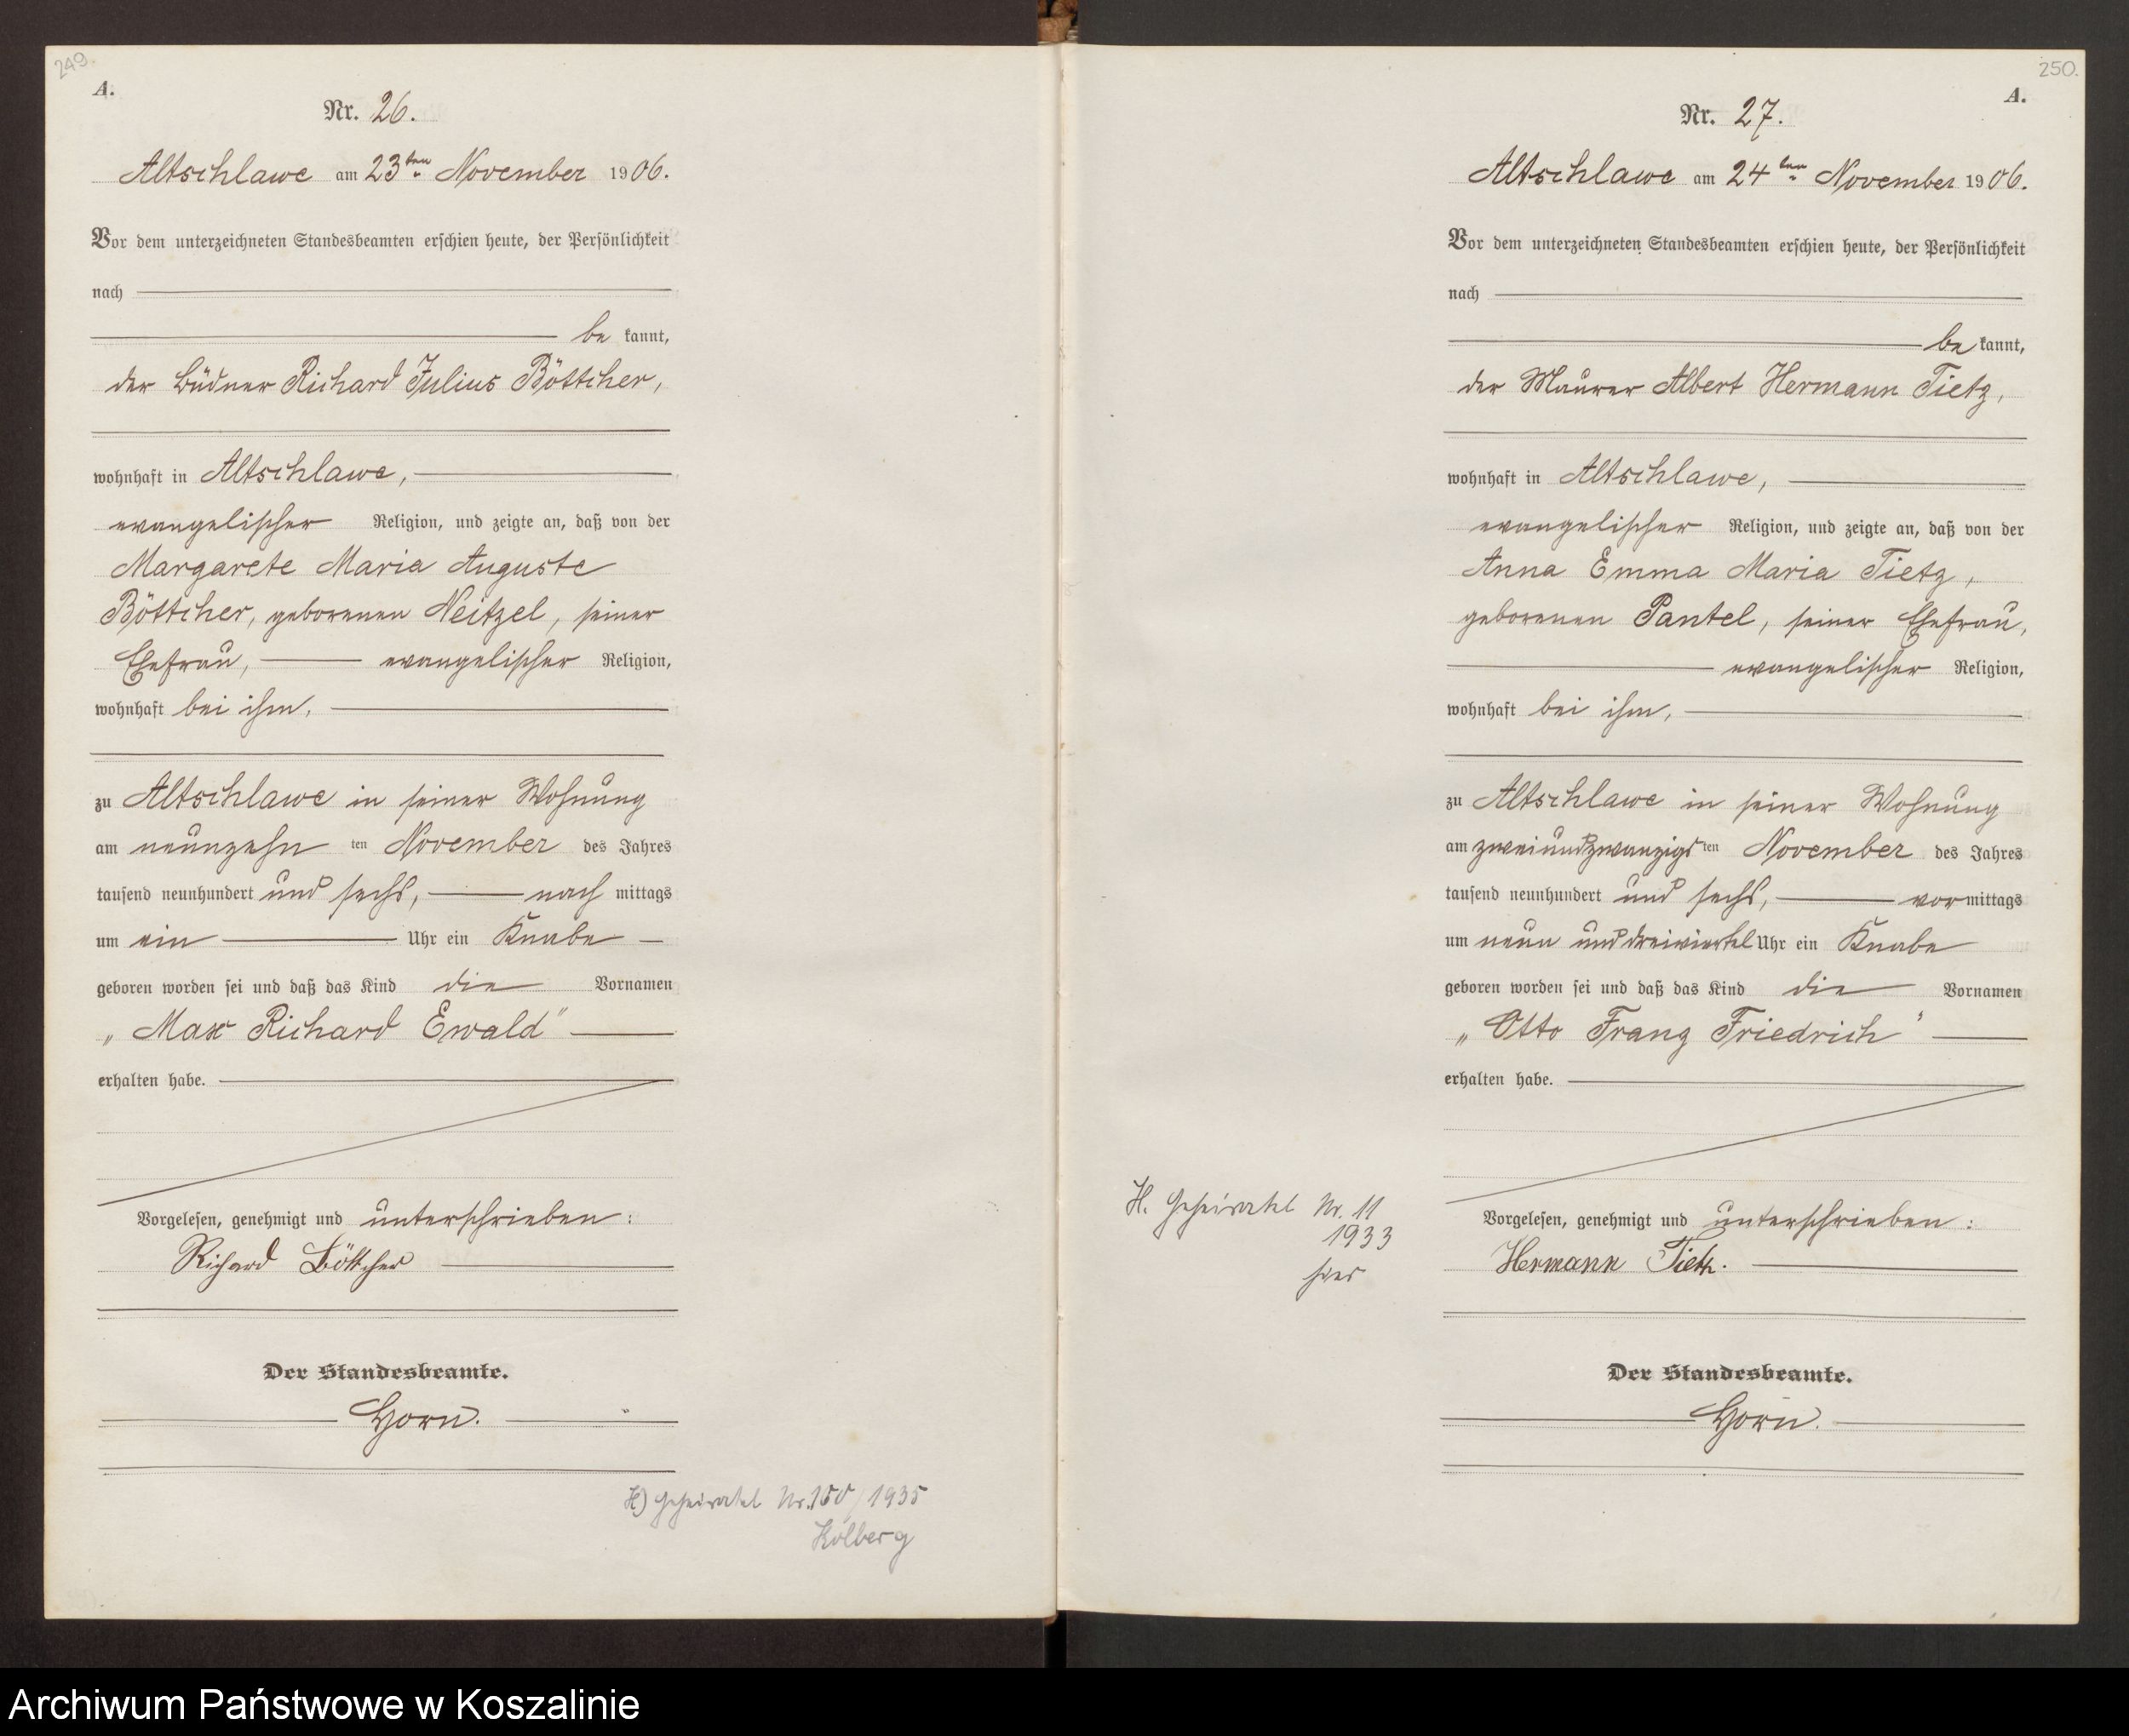 249.
A.
Nr. 26.
Altschlawe am 23ten November 1906.
Vor dem unterzeichneten Standesbeamten erschien heute, der Persönlichkeit
nach
be kannt,
der Büdner Richard Julius Böttcher,
wohnhaft in Altschlawe,
evangelischer Religion, und zeigte an, daß von der
Margarete Maria Auguste
Böttcher, geborenen Neitzel, seiner
Ehefrau, evangelischer Religion,
wohnhaft bei ihm,
zu Altschlawe in seiner Wohnung
am neunzehn ten November des Jahres
tausend neunhundert und sechs, nach mittags
um ein Uhr ein Knabe
geboren worden sei und daß das Kind die Vornamen
„Max Richard Ewald"
erhalten habe.
Vorgelesen, genehmigt und unterschrieben:
Richard Böttcher
Der Standesbeamte.
Horn.
H) Geheiratet Nr. 150/1935
Kolberg
250.
A.
Nr. 27.
Altschlawe am 24ten November 1906.
Vor dem unterzeichneten Standesbeamten erschien heute, der Persönlichkeit
nach
be kannt,
der Maurer Albert Hermann Tietz,
wohnhaft in Altschlawe,
evangelischer Religion, und zeigte an, daß von der
Anna Emma Maria Tietz,
geborenen Pantel, seiner Ehefrau,
evangelischer Religion,
wohnhaft bei ihm,
zu Altschlawe in seiner Wohnung
am zweiundzwanzigsten November des Jahres
tausend neunhundert und sechs, vor mittags
um neun und dreiviertel Uhr ein Knabe
geboren worden sei und daß das Kind die Vornamen
„Otto Franz Friedrich"
erhalten habe.
H. Geheiratet Nr. 11
1933
hier
Vorgelesen, genehmigt und unterschrieben:
Hermann Tietz.
Der Standesbeamte.
Horn.
Archiwum Państwowe w Koszalinie